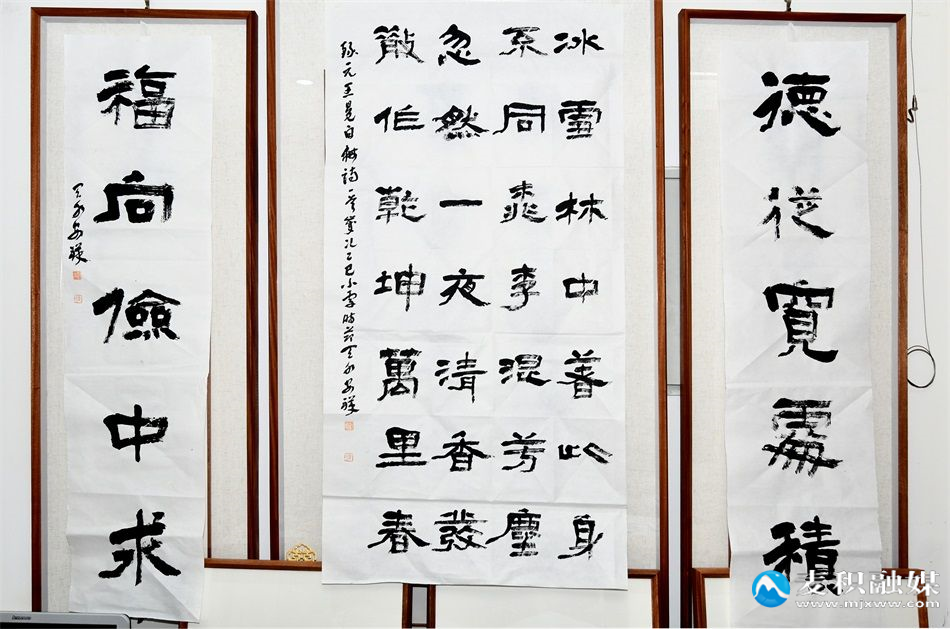 德從寬處積
冰雪林中著此身
不同桃李混芳塵
忽然一夜清香發
散作乾坤萬里春
錄元王冕白梅詩一首歲次乙巳小雪時節天水
福向儉中求
天水
麦积融媒
www.mjxww.com